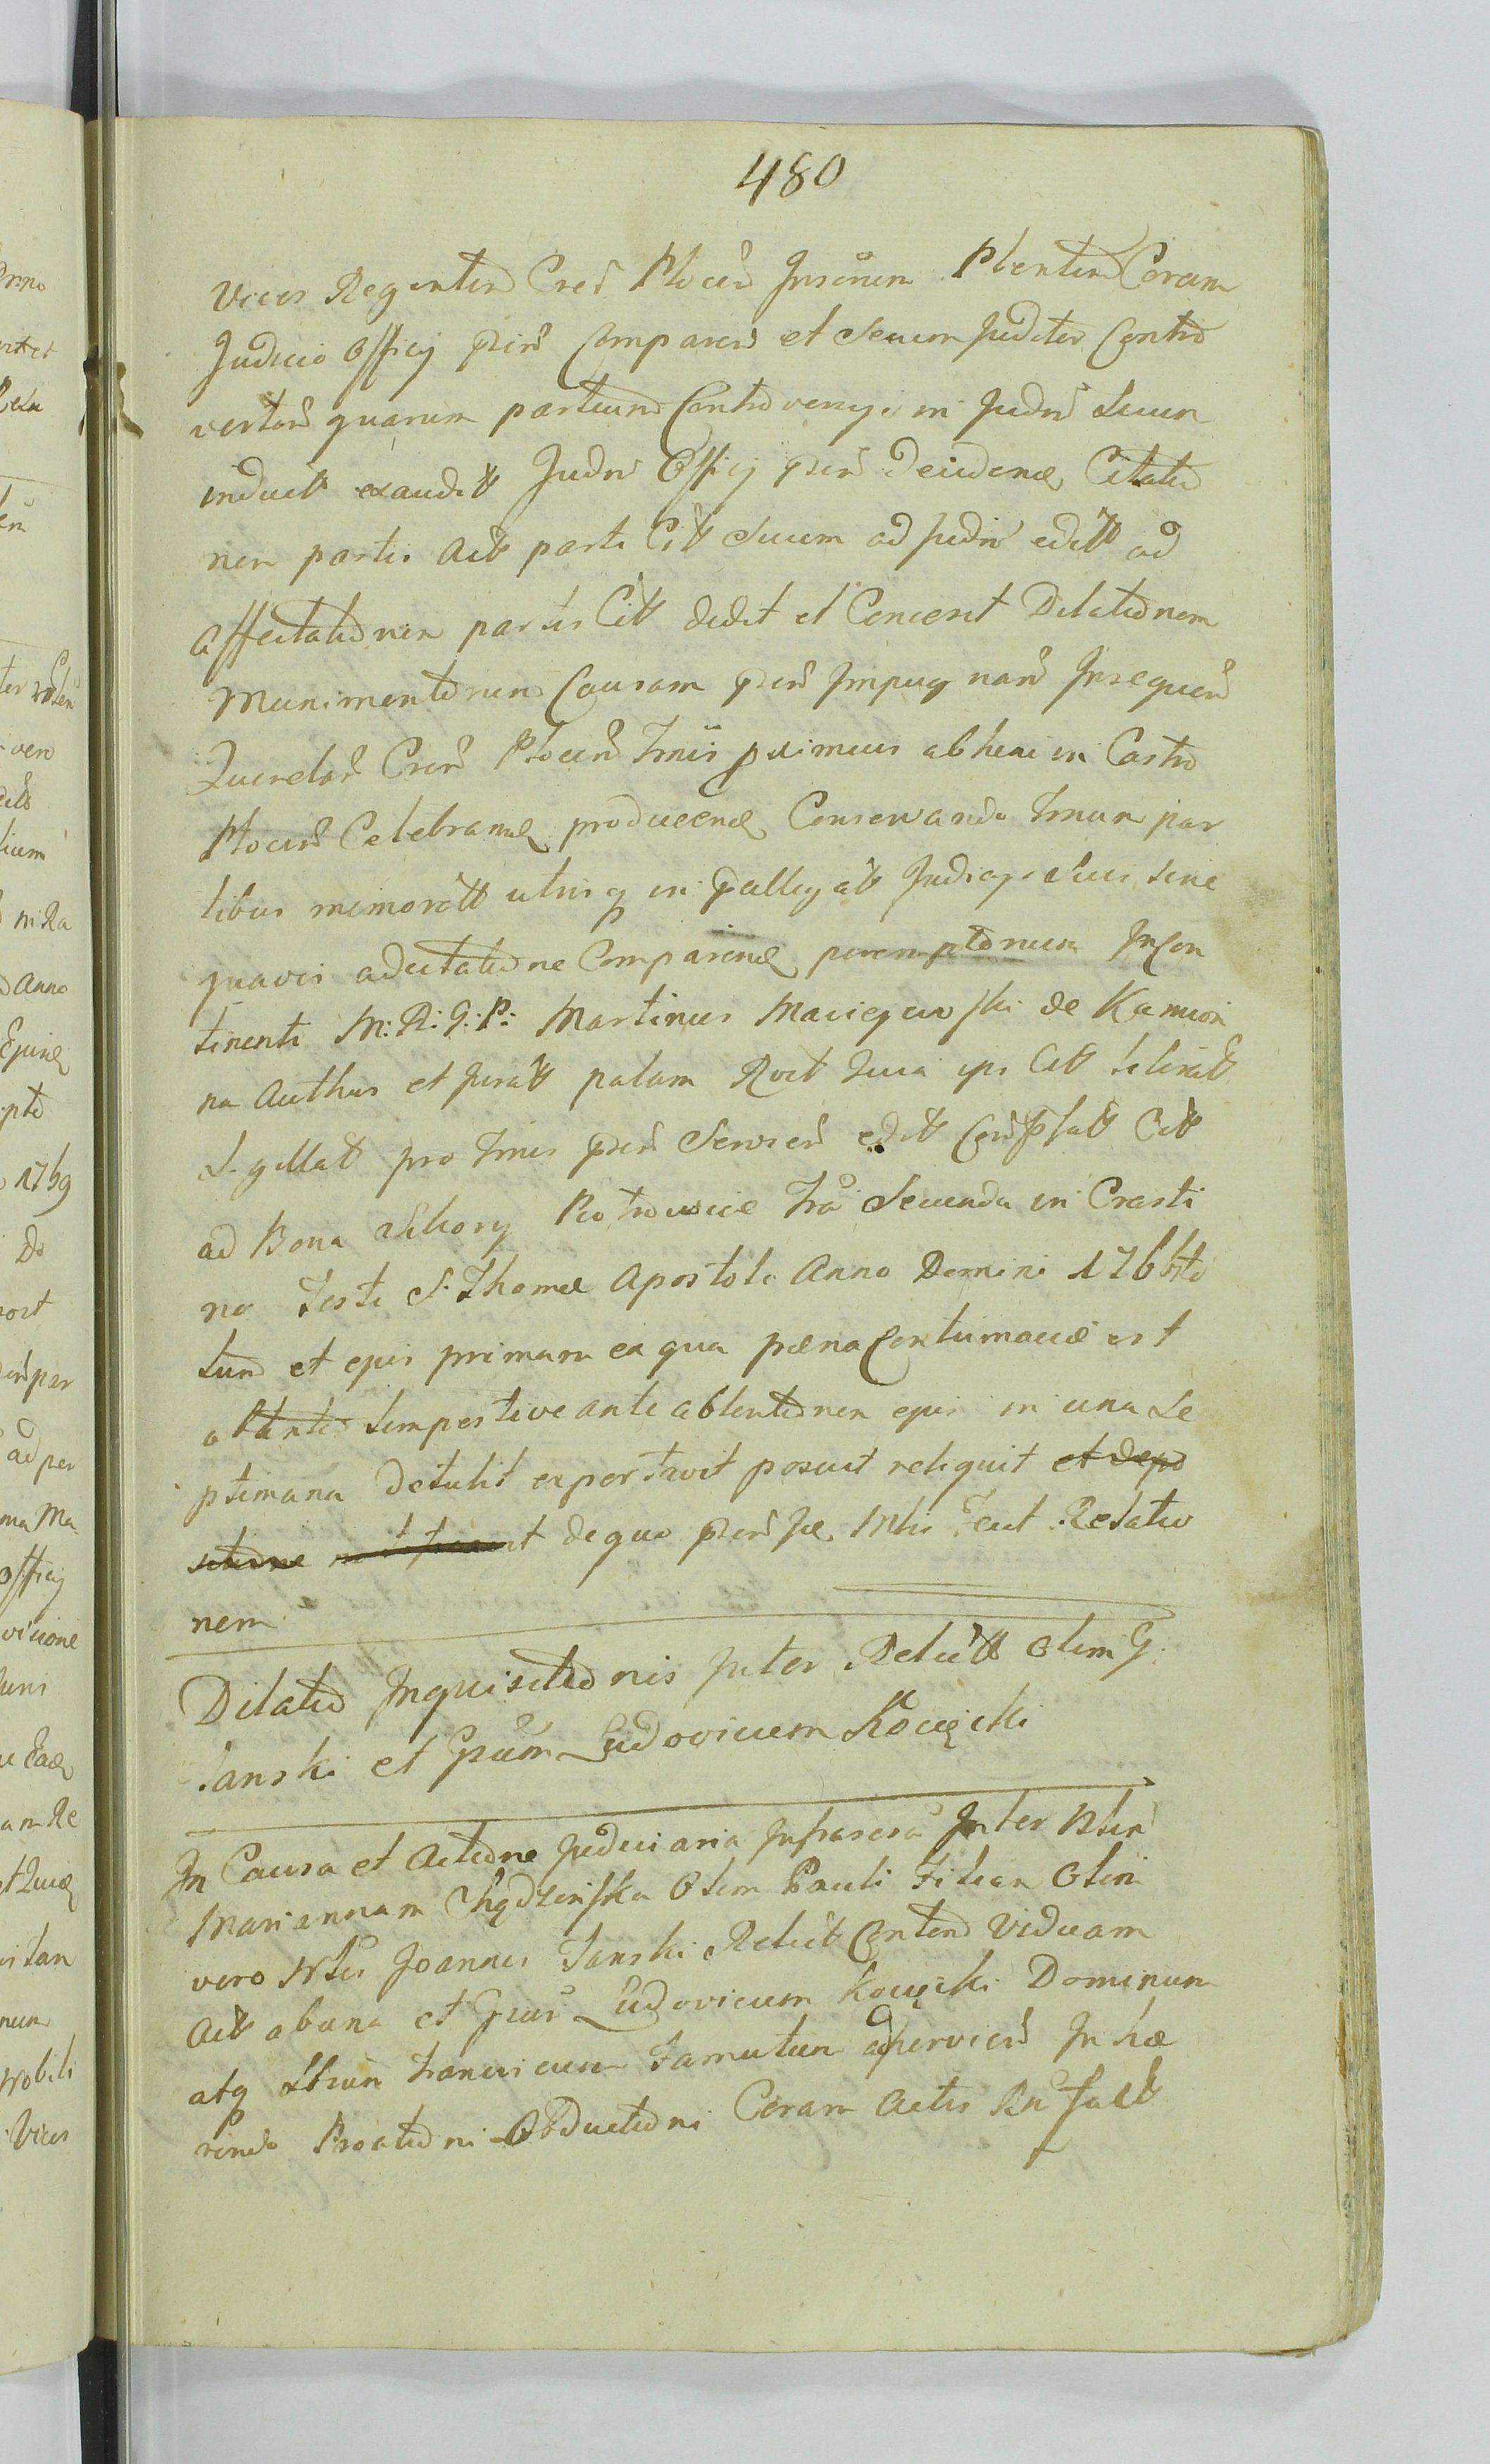 480
Vices Regentem Cren Plocen Insonem Plenten Coram
Judicio Officij psens Comparen et Secum Juditer Contro
verten quarum partium Controversijs in Judm Suum
induct exaudit Judm Officij psens Decidendo Citatio
nem partis Act parti Citt Suum ad Judm edit ad
affectationem partis Citt dedit et Concessit Dilationem
Munimentorum Causam psens Impugnan Insequen
Querelar Cren Plocen Tmis primus ab hinc in Castro
Plocen Celebrand producend Conservando Tmum par
tibus memoratt utrisq in pallegat Judicys Suis sine
quavis adcitatione Comparend peremptorium Incon
tinenti M: R: G: P: Martinus Maciejewski de Kamion
na Authus et Jurat palam Rvit Quia ips Citt
Sigillat pro Tmis psens Servien edit Citt
ad Bona Sikory Piotrowice fra Secunda in Crasti
no Festi S. Thomae Apostoli Anno Domini 1766to
tum et ejus primum ex qua paena Contumaciae est
tempestive ante ablentionem ejus in una Se
ptimana Detulit exportavit posuit reliquit et depo
sitione de quo psens Fecit Relatio
nem
Dilatio Inquisitionis Inter Relictt Olim G.
Janski et Gsum Ludovicum Kocięcki
In Causa et Actione Judiciaria Infrascra Inter Nlem
Mariannam Chądzińska Olim Pauli Filiam Olim
vero Nlis Joannis Janski Relict Conten Viduam
Act ab una et Gsum Ludovicum Kocięcki Dominum
atq Franciscum Famulum Inhae
rendo Proationi Obductioni Coram Actis